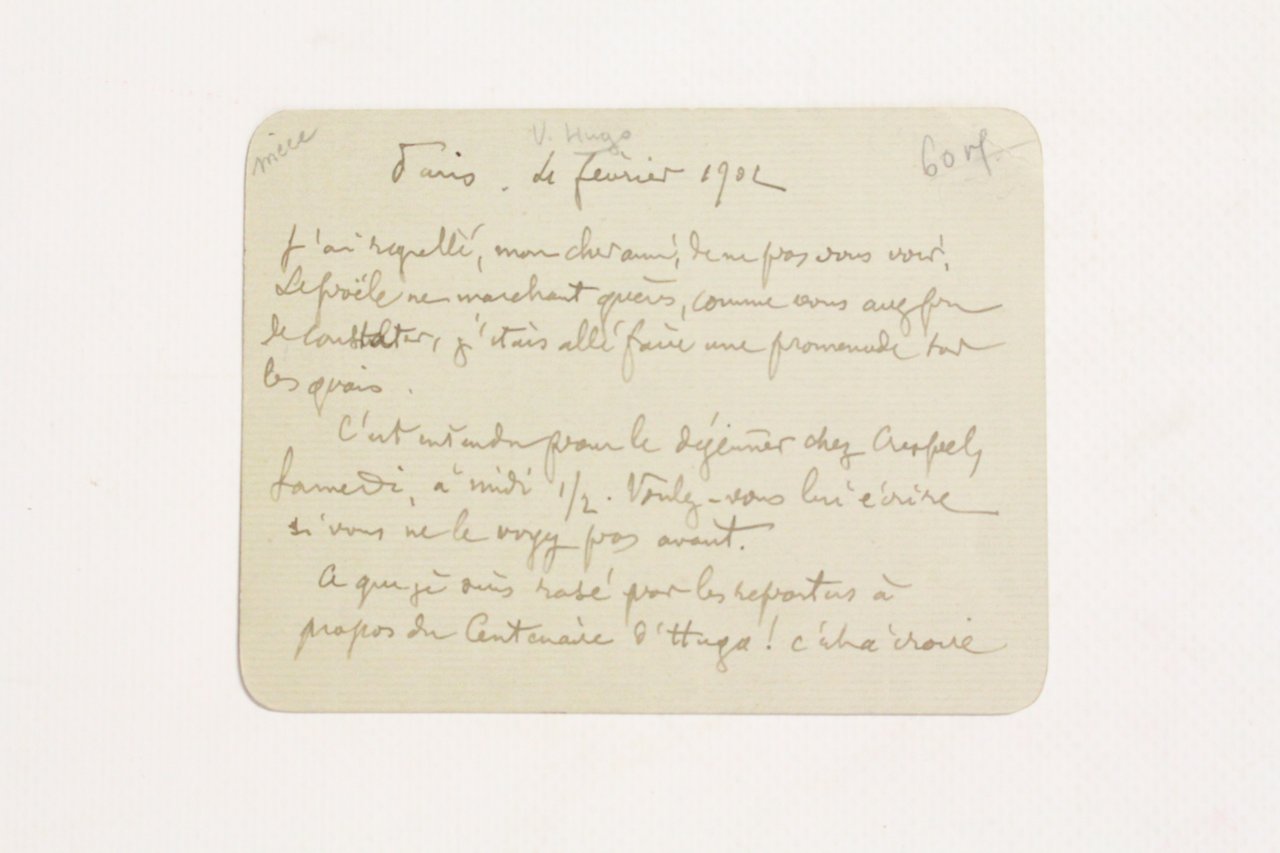 V. Hugo
Paris. le février 1902
J'ai regretté, mon cher ami, de ne pas vous voir.
Le poële ne marchant guère, comme vous avez pu
le constater, j'étais allé faire une promenade sur
les quais.
C'est entendu pour le déjeuner chez Crespel,
samedi, à midi 1/2. Voulez-vous lui écrire
si vous ne le voyez pas avant.
Ce que je suis rasé par les reporters à
propos du Centenaire d'Hugo! c'est à croire